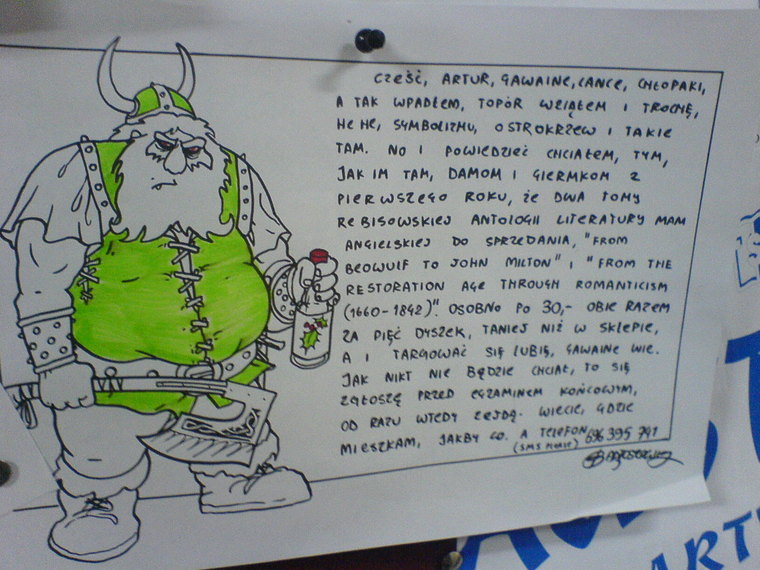 CZEŚĆ, ARTUR, GAWAINE, LANCE, CHŁOPAKI,
A TAK WPADŁEM, TOPÓR WZIĄŁEM I TROCHĘ,
HE HE, SYMBOLIZMU, OSTROKRZEW I TAKIE
TAM. NO I POWIEDZIEĆ CHCIAŁEM, TYM,
JAK IM TAM, DAMOM I GIERMKOM Z
PIERWSZEGO ROKU, ŻE DWA TOMY
REBISOWSKIEJ ANTOLOGII LITERATURY MAM
ANGIELSKIEJ DO SPRZEDANIA, "FROM
BEOWULF TO JOHN MILTON" I "FROM THE
RESTORATION AGE THROUGH ROMANTICISM
(1660-1842)". OSOBNO PO 30,- OBIE RAZEM
ZA PIĘĆ DYSZEK, TANIEJ NIŻ W SKLEPIE,
A I TARGOWAĆ SIĘ LUBIĘ, GAWAINE WIE.
JAK NIKT NIE BĘDZIE CHCIAŁ, TO SIĘ
ZGŁOSZĘ PRZED EGZAMINEM KOŃCOWYM,
OD RAZU WTEDY ZEJDĄ. WIECIE, GDZIE
MIESZKAM, JAKBY CO. A TELEFON 696 395 791
(SMS MOŻE)
ART